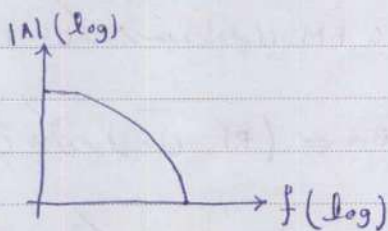 |A| (log)
f (log)